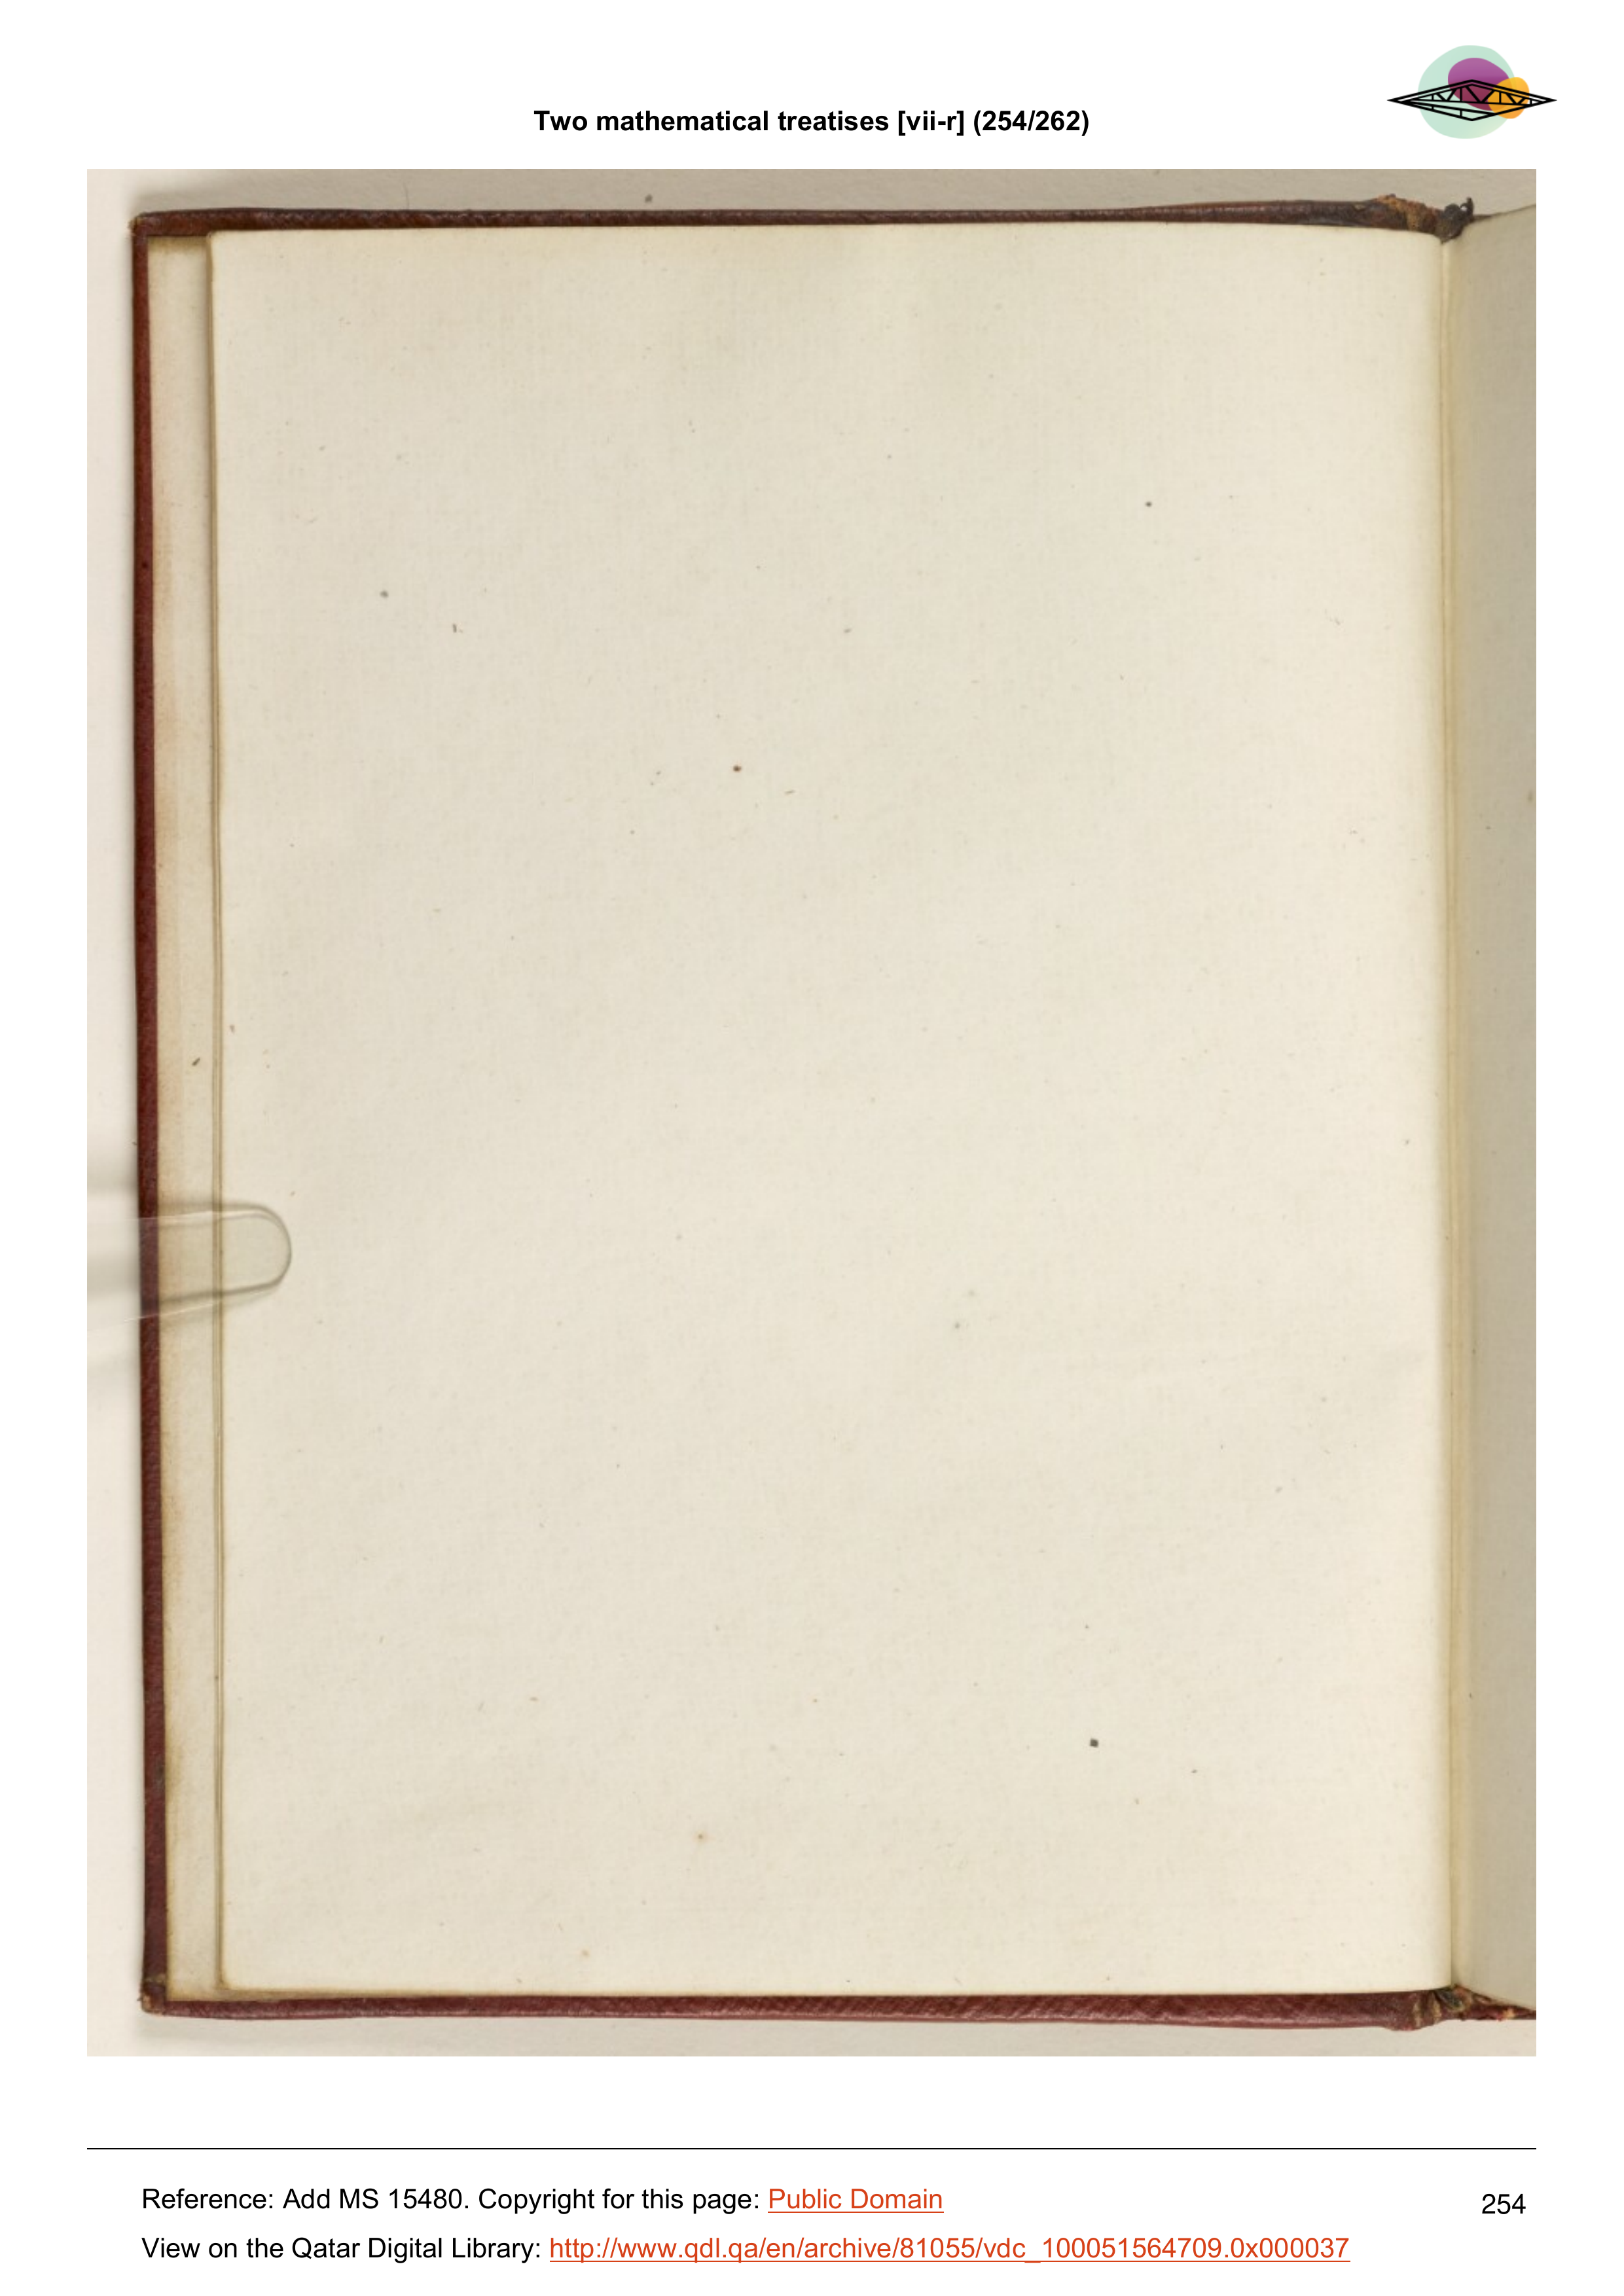 Two mathematical treatises [vii-r] (254/262)
Reference: Add MS 15480. Copyright for this page: Public Domain
254
View on the Qatar Digital Library: http://www.qdl.qa/en/archive/81055/vdc_100051564709.0x000037